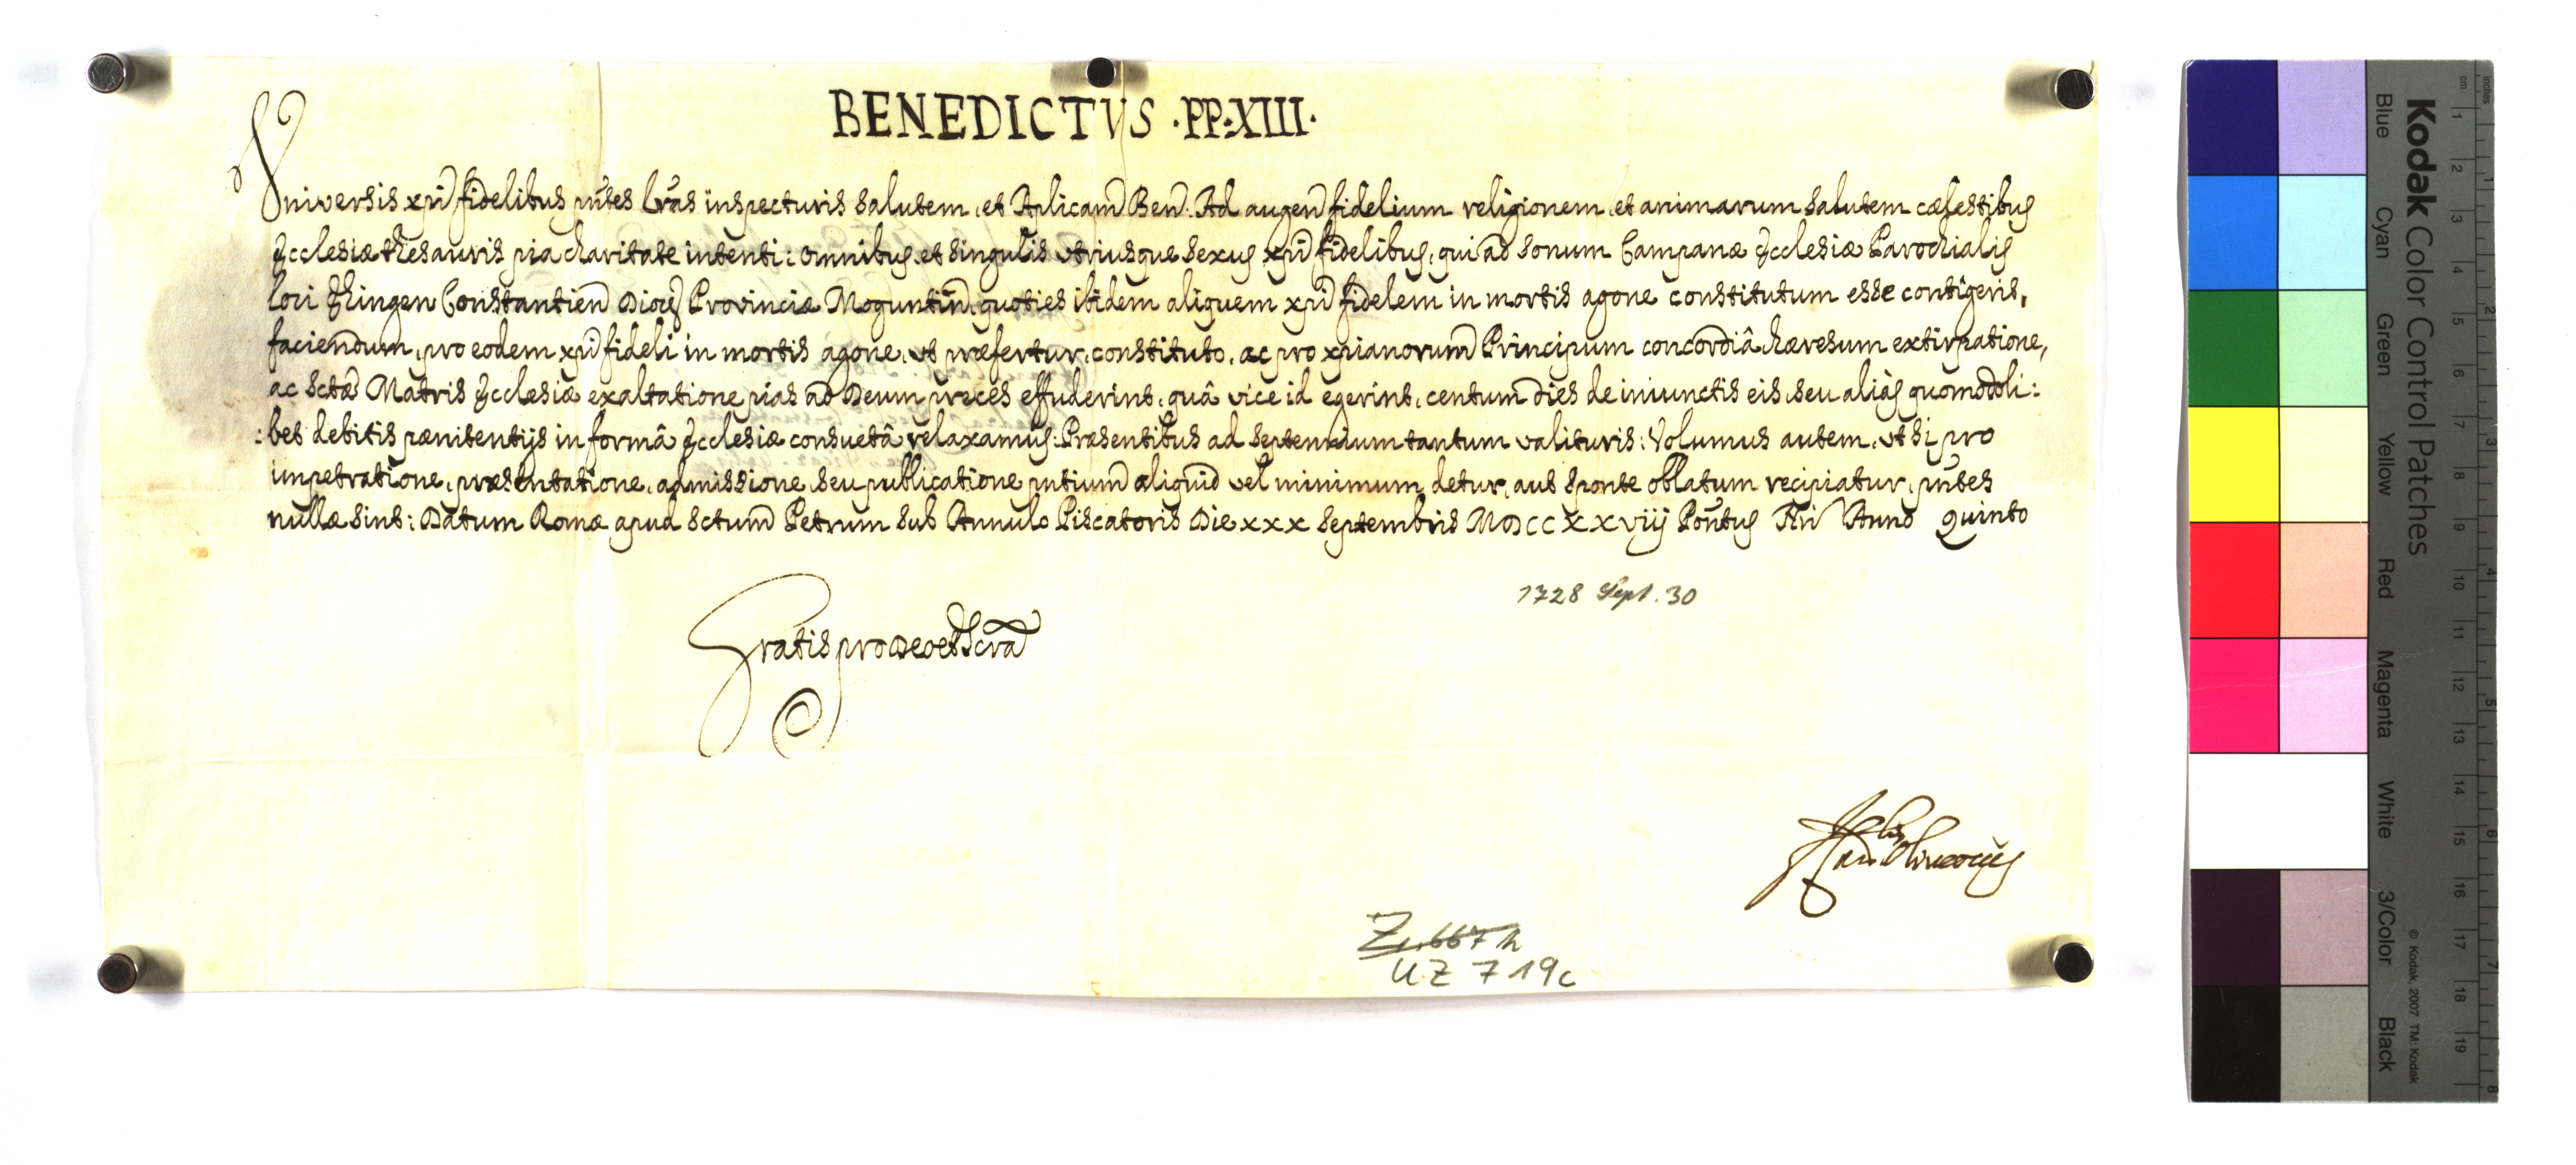 BENEDICTVS ·PP·XIII·
Universis xpi fidelibus pntes lras inspecturis salutem, et Aplicam Ben. Ad augen fidelium religionem, et animarum salutem cælestibus
Ecclesiæ thesauris pia charitate intenti: omnibus, et singulis utriusque sexus xpi fidelibus, qui ad sonum Campanæ Ecclesiæ Parochialis
loci Ehingen Constantien Dioces Provinciæ Moguntin, quoties ibidem aliquem xpi fidelem in mortis agone constitutum esse contigeris,
faciendum, pro eodem xpi fideli in mortis agone, ut præfertur, constituto, ac pro xpianorum Principum concordiâ hæresum extirpatione,
ac Sctæ Matris Ecclesiæ exaltatione pias ad Deum preces effuderint, quâ vice id egerint, centum dies de iniunctis eis, seu aliàs quomodoli:
:bet debitis pænitentijs in formâ Ecclesiæ consuetâ relaxamus: Præsentibus ad septennium tantum valituris: Volumus autem, ut si pro
impetratione, præsentatione, admissione, seu publicatione pntium aliquid vel minimum detur, aut sponte oblatum recipiatur, pntes
nullæ sint: Datum Romæ apud Sctum Petrum sub Annulo Piscatoris Die xxx Septembris MDCCXXVIIJ Pontus Nri Anno Quinto
1728 Sept. 30
Gratis pro Deo et Scra
Z. 667 h
UZ 719c